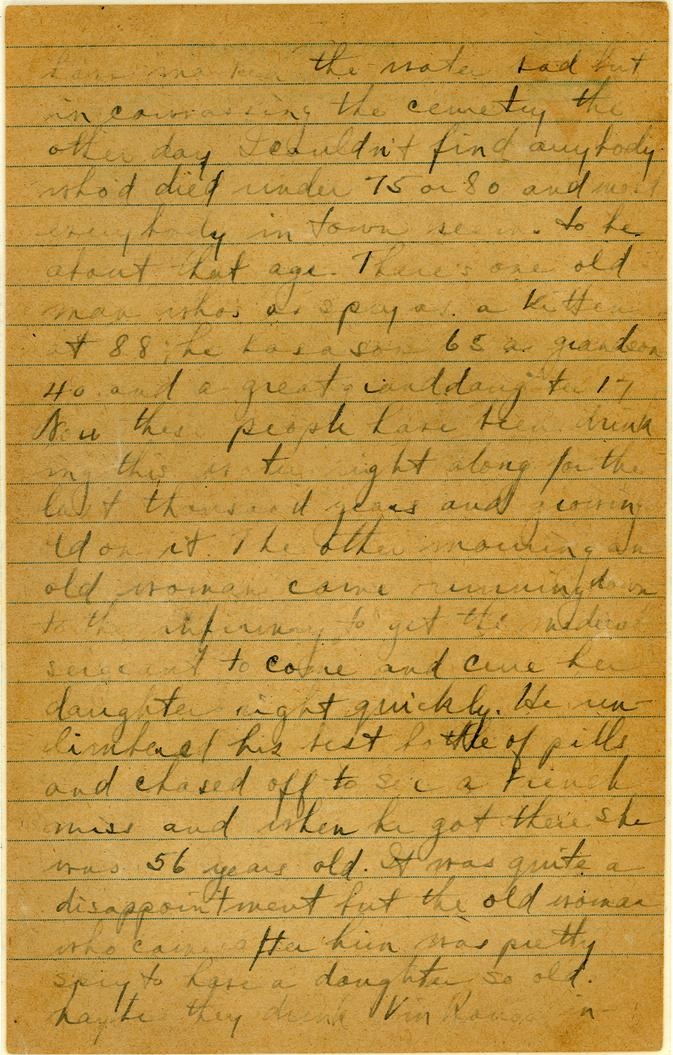 have marked the water bad but
in canvassing the cemetery the
other day I couldn't find anybody
who'd died under 75 or 80 and most
everybody in town seems to be
about that age. There's one old
man who's as spry as a kitten
at 88; he has a son 65 a grandson
40 and a great granddaughter 17
Now these people have been drink
ing this water right along for the
last thousand years and growing
old on it. The other morning an
old woman came running down
to the infirmary to get the medical
sergeant to come and cure her
daughter right quickly. He un-
limbered his best bottle of pills
and chased off to see a French
miss and when he got there she
was 56 years old. It was quite a
disappointment but the old woman
who came after him was pretty
spry to have a daughter so old.
Maybe they drink Vin Rouge in-